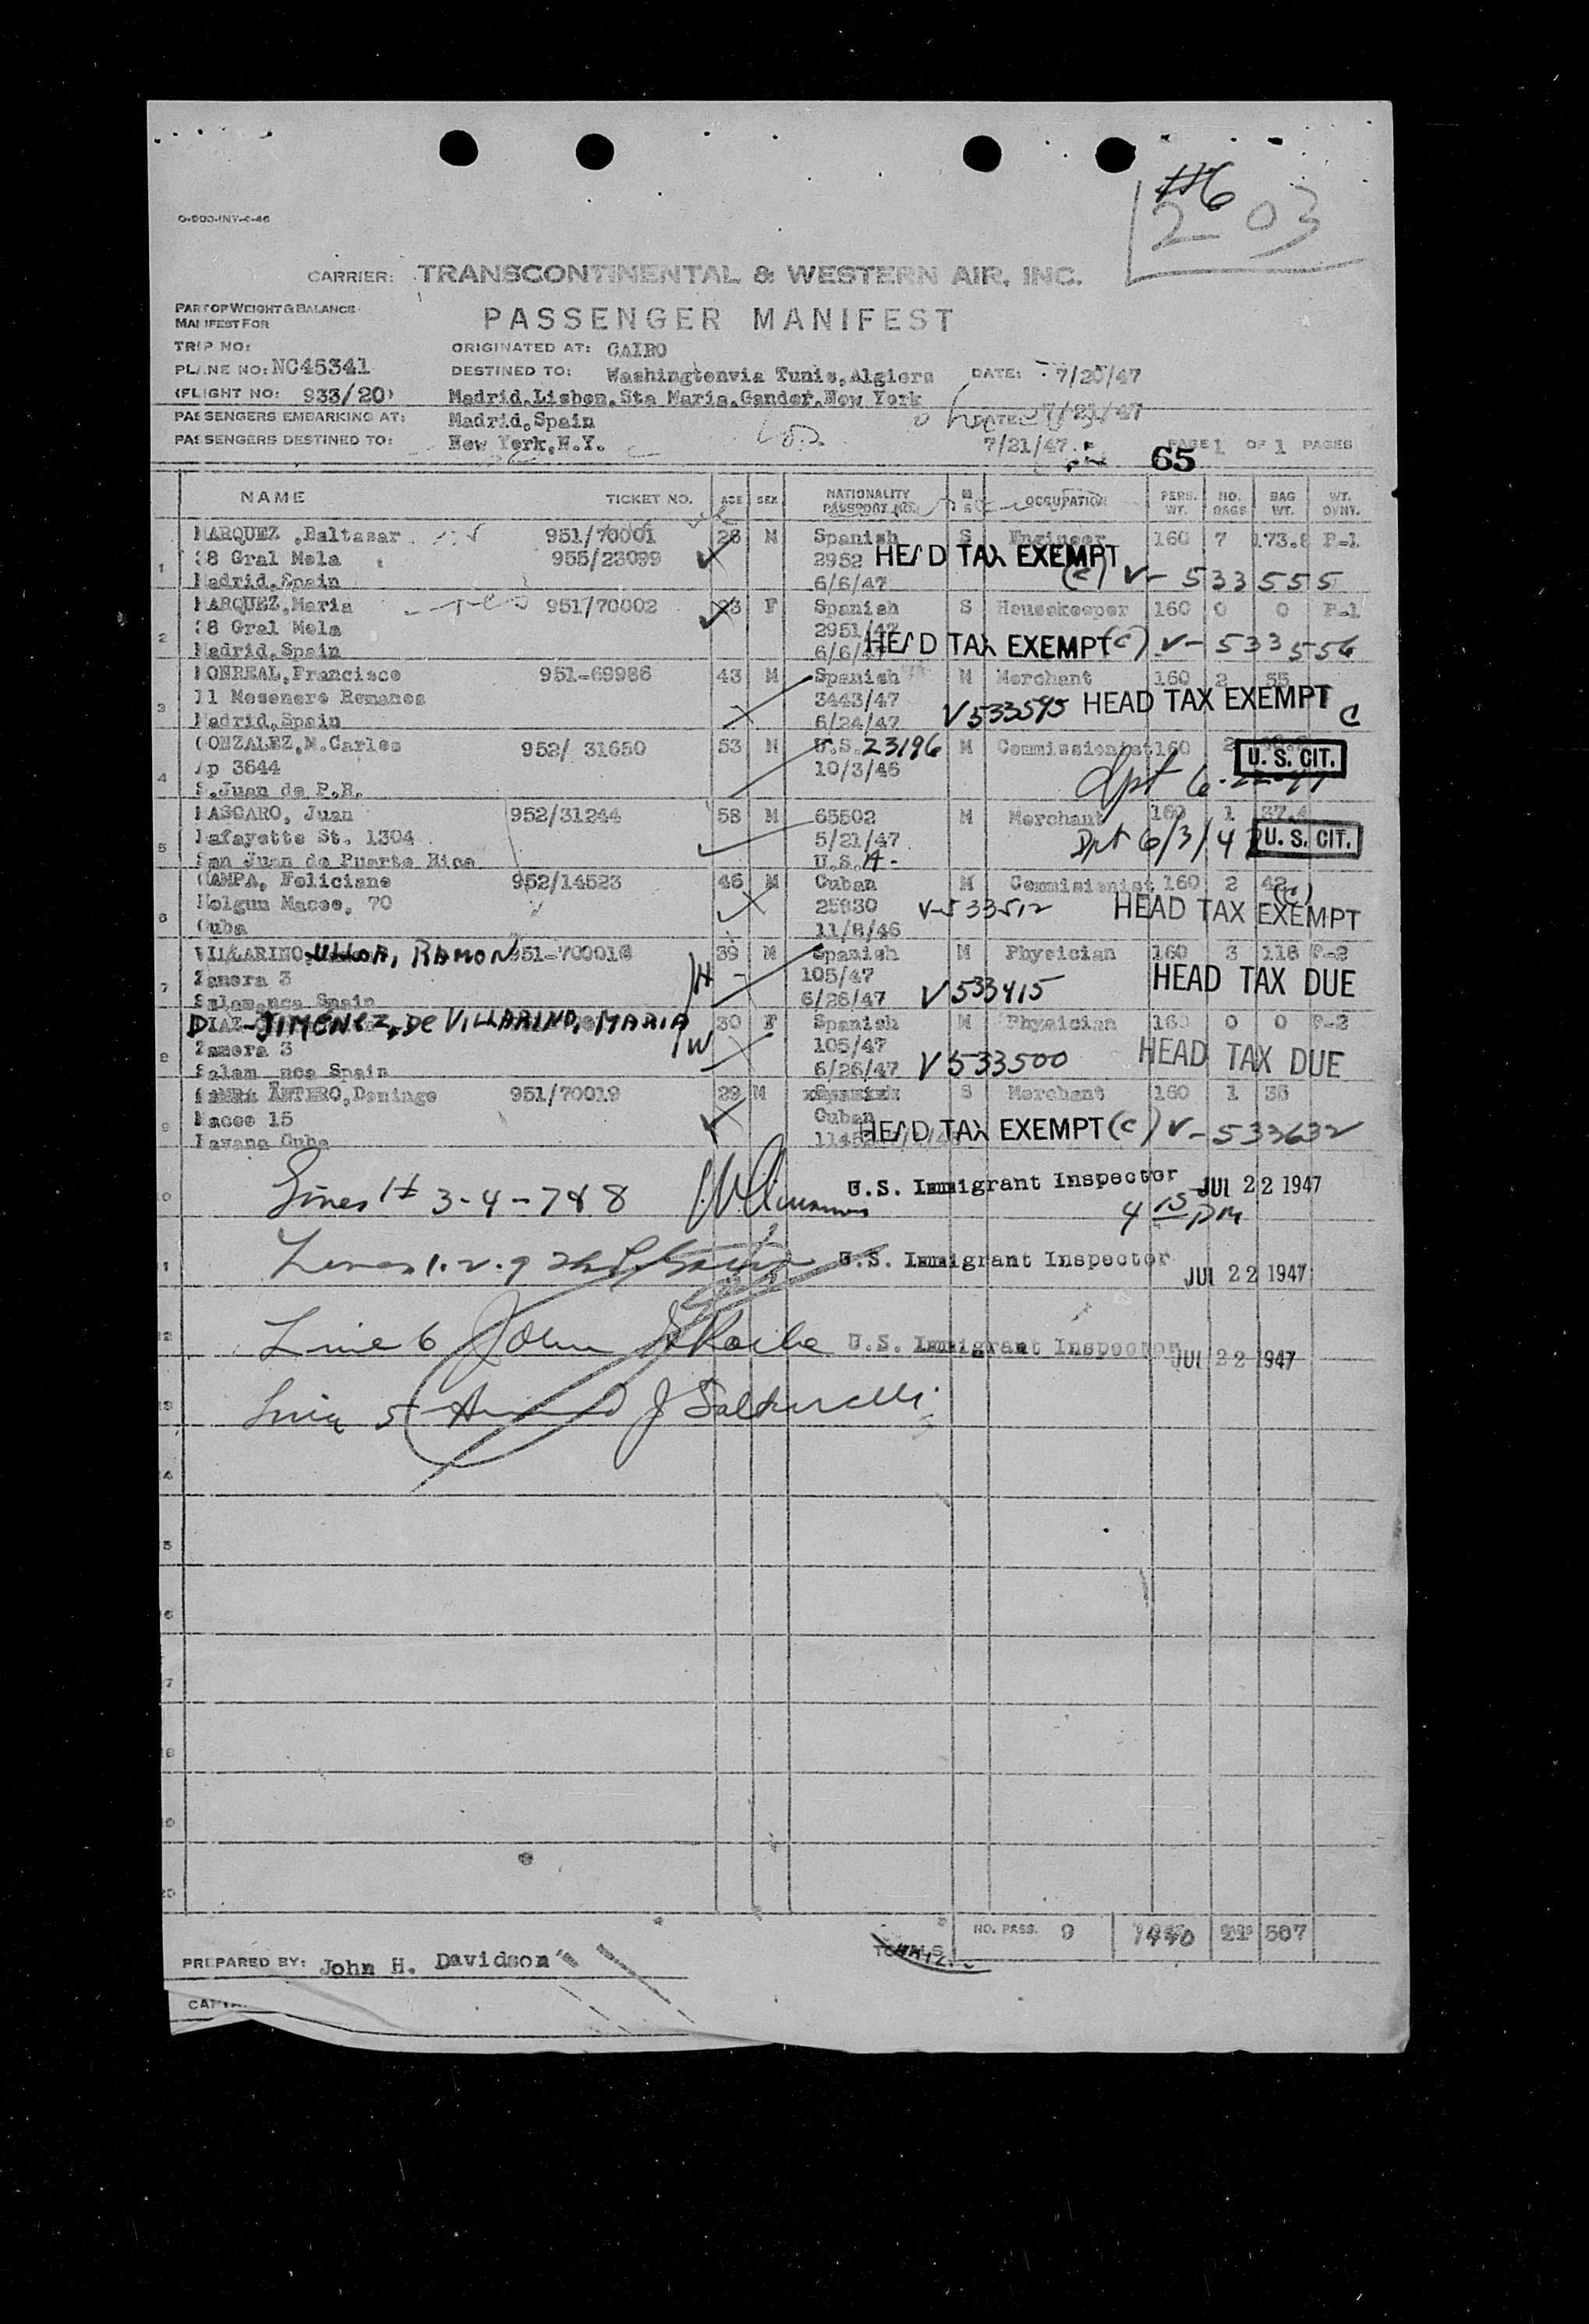 #6
203
O-900-INT-4-46
CARRIER: TRANSCONTINENTAL & WESTERN AIR, INC.
PART OF WEIGHT & BALANCE
MANIFEST FOR
PASSENGER MANIFEST
TRIP NO: ORIGINATED AT: CAIRO
PLANE NO: NC45341 DESTINED TO: Washingtonvia Tunis,Algiers DATE: 7/20/47
(FLIGHT NO: 933/20) Madrid,Lisbon,Sta Maria,Gander,New York
PASSENGERS EMBARKING AT: Madrid,Spain DATE: 7/21/47
PASSENGERS DESTINED TO: New York,N.Y. 7/21/47 PAGE 1 OF 1 PAGES
65
NAME TICKET NO. AGE SEX NATIONALITY PASSPORT NO. M S OCCUPATION PERS. WT. NO. BAGS BAG WT. WT. OVNT.
MARQUEZ ,Baltasar 951/70001 26 M Spanish S Engineer 160 7 173.8 P-1
1 38 Gral Mola 955/23099 2952 HEAD TAX EXEMPT
Madrid,Spain 6/6/47 (c) V-533555
MARQUEZ,Maria 951/70002 23 F Spanish S Housekeeper 160 0 0 P-1
38 Gral Mola 2951/47
2 Madrid,Spain 6/6/47 HEAD TAX EXEMPT (c) V-533556
MONREAL,Francisco 951-69986 43 M Spanish M Merchant 160 2 55
11 Mesonero Romanos 3443/47
3 Madrid,Spain 6/24/47 V533595 HEAD TAX EXEMPT C
GONZALEZ,M.Carlos 952/ 31650 53 M U.S. 23196 M Commissionist 160 2 U. S. CIT.
4 Ap 3644 10/3/46
S.Juan de P.R. Dpt 6-22-47
MASCARO, Juan 952/31244 58 M 65502 M Merchant 160 1 37.4
5 Lafayette St. 1304 5/21/47 Dpt 6/3/47 U. S. CIT.
San Juan de Puerto Rico U.S.A.
CAMPA, Feliciano 952/14523 46 M Cuban M Commisionist 160 2 42
Holgun Maceo, 70 25930 V-533512 (c) HEAD TAX EXEMPT
6 Cuba 11/8/46
VILLARINO, ULLOA, RAMON 951-70001 39 M Spanish M Physician 160 3 118 P-2
7 Zamora 3 H 105/47 HEAD TAX DUE
Salamanca Spain 6/26/47 V533415
DIAZ-JIMENEZ, De VILLARINO, MARIA 30 F Spanish M Physician 160 0 0 P-2
8 Zamora 3 W 105/47 HEAD TAX DUE
Salam nca Spain 6/26/47 V533500
ANTERO,Domingo 951/70019 29 M S Merchant 160 1 35
Maceo 15 Cuban
9 Havana Cuba HEAD TAX EXEMPT (c) V-533632
Lines # 3-4-7&8 U.S. Immigrant Inspector JUL 22 1947
4 15 PM
Lines 1.2.9 U.S. Immigrant Inspector JUL 22 1947
Line 6 John U.S. Immigrant Inspector JUL 22 1947
Line 5
TOTALS NO. PASS. 9 1440 507
PREPARED BY: John H. Davidson